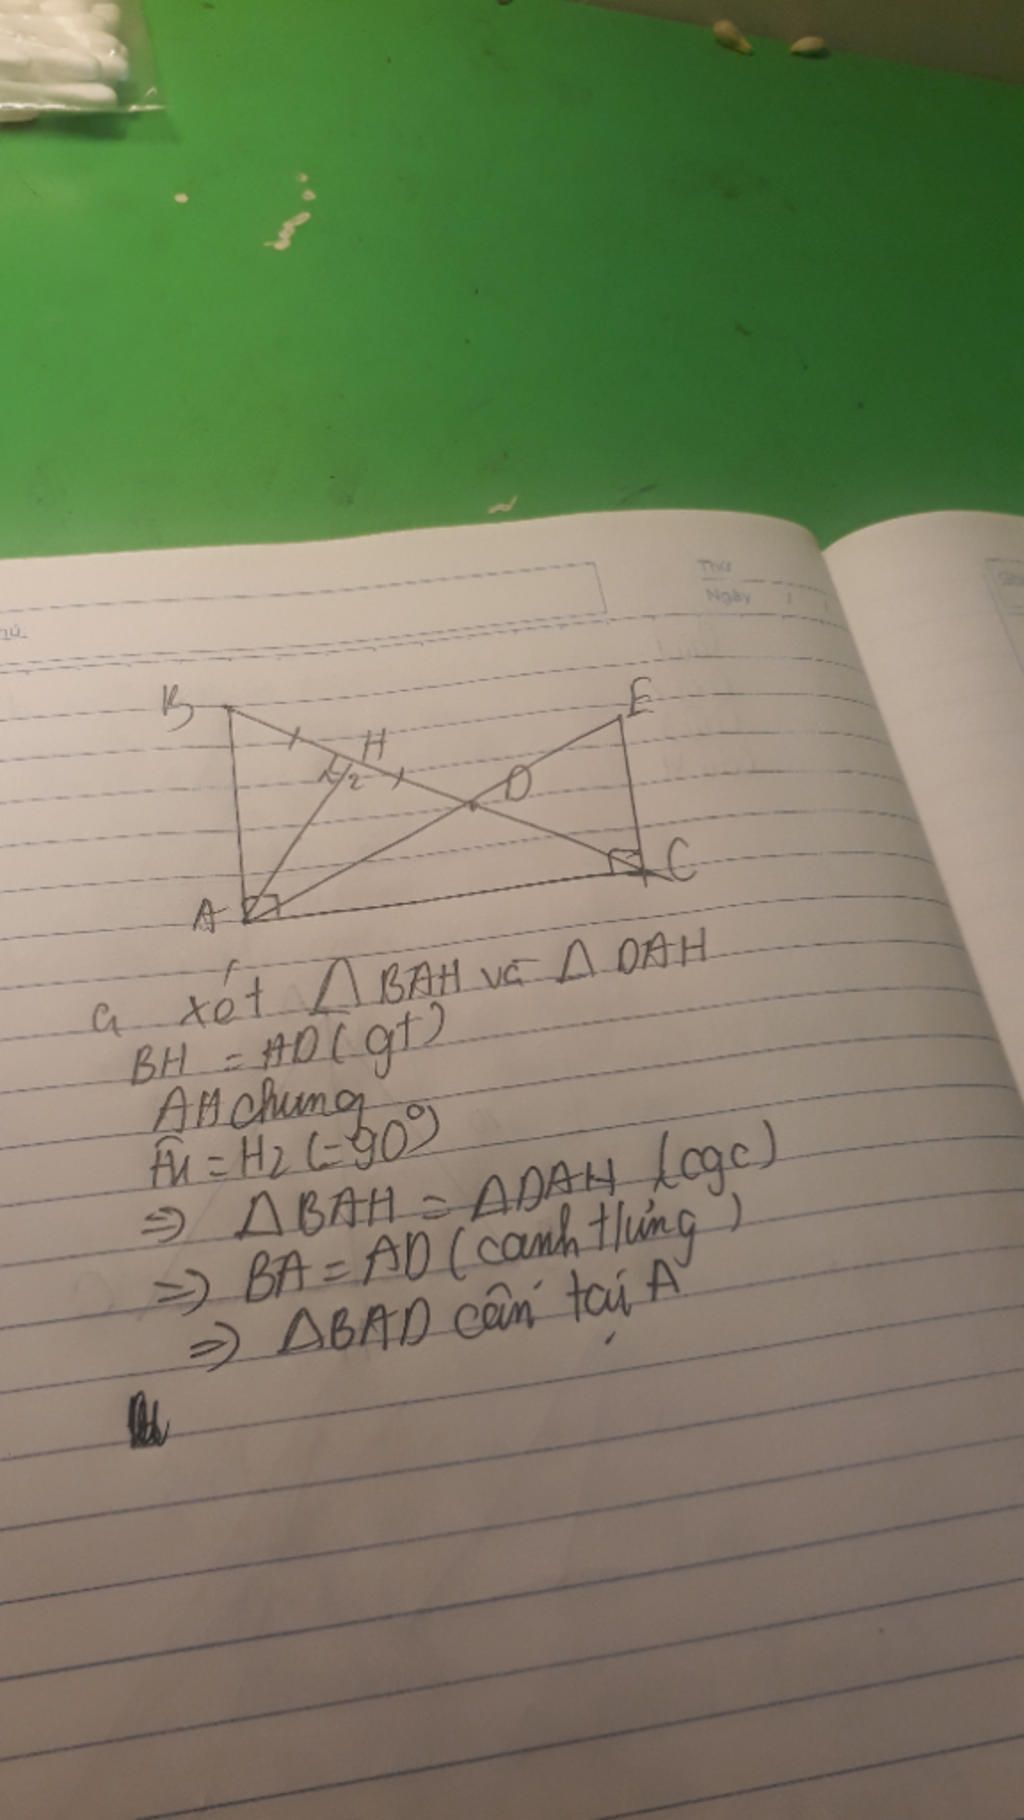 Thứ
Ngày
B
E
H
1 2
D
A
C
a xét △BAH và △DAH
BH = AD (gt)
AH chung
H1 = H2 (=90°)
=> △BAH = △DAH (cgc)
=> BA = AD (canh t/ứng)
=> △BAD cân tại A